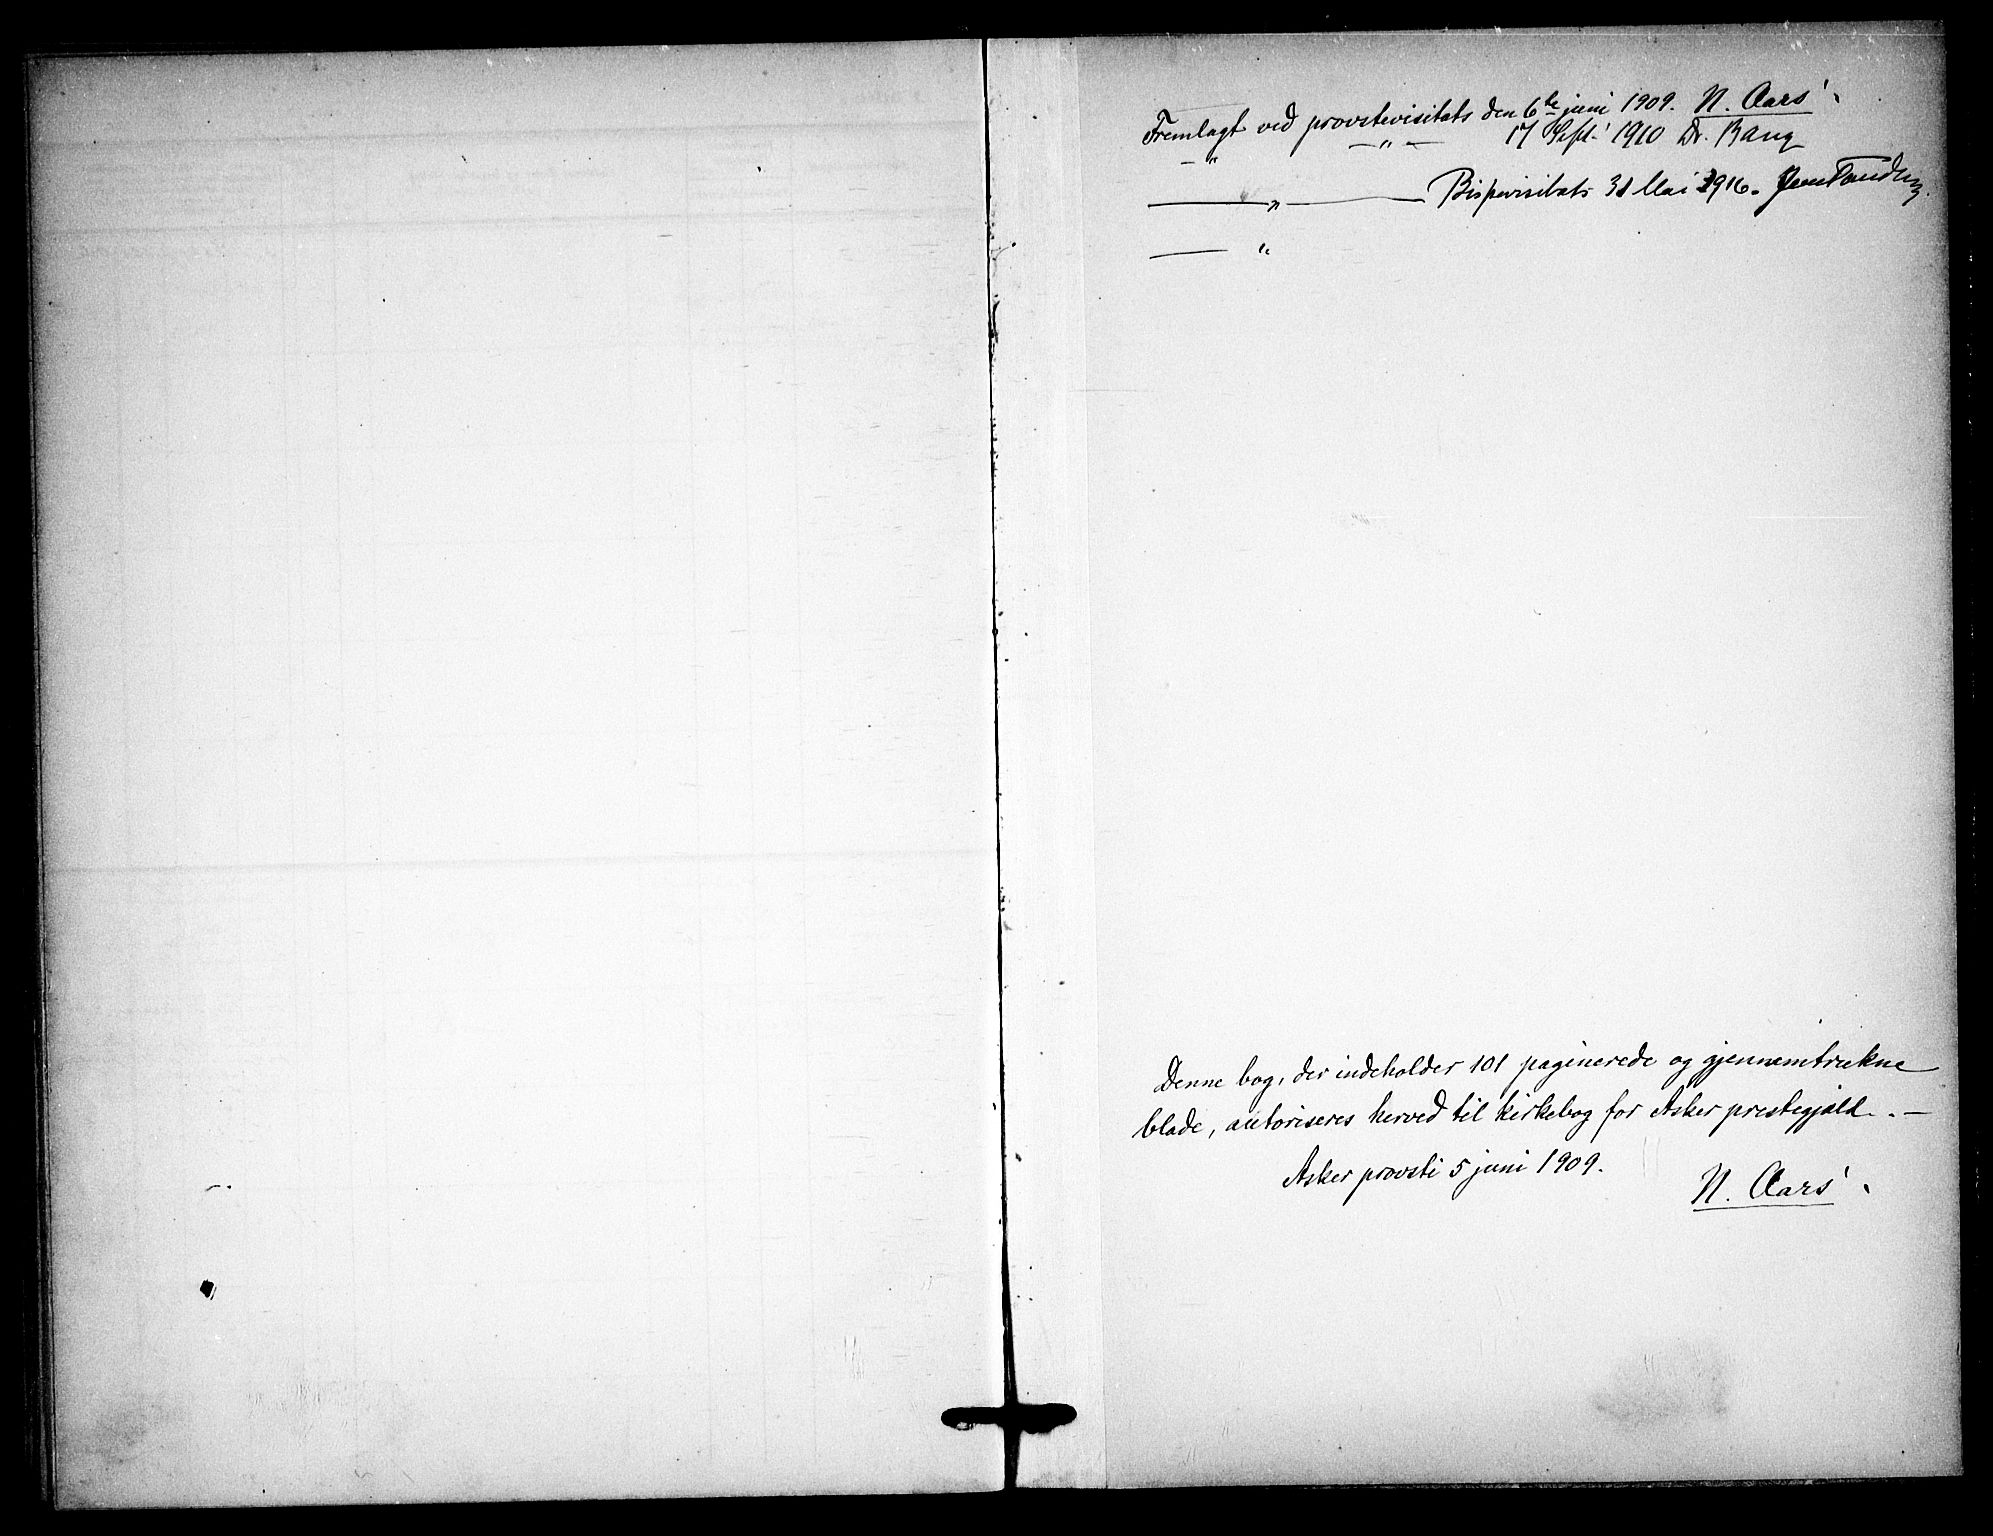 Fremlagt ved provstevisitats den 6te juni 1909. N. Aars.
— " — " — 17 Sept. 1910 Dr. Bang
— " — Bispevisitats 31 Mai 1916. Jens Tandberg
— "
Denne bog, der indeholder 101 paginerede og gjennemtrukne
blade, autoriseres herved til kirkebog for Asker prestegjæld. . —
Asker provsti 5 juni 1909.
N. Aars.